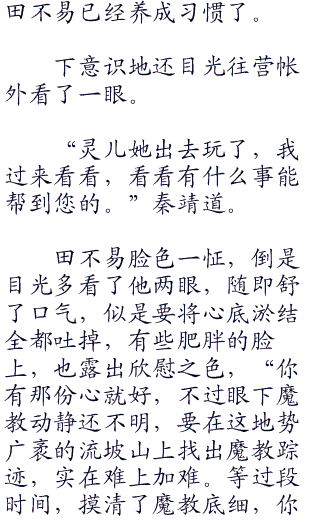 田不易已经养成习惯了。
下意识地还目光往营帐
外看了一眼。
“灵儿她出去玩了，我
过来看看，看看有什么事能
帮到您的。”秦靖道。
田不易脸色一怔，倒是
目光多看了他两眼，随即舒
了口气，似是要将心底淤结
全都吐掉，有些肥胖的脸
上，也露出欣慰之色，“你
有那份心就好，不过眼下魔
教动静还不明，要在这地势
广袤的流坡山上找出魔教踪
迹，实在难上加难。等过段
时间，摸清了魔教底细，你